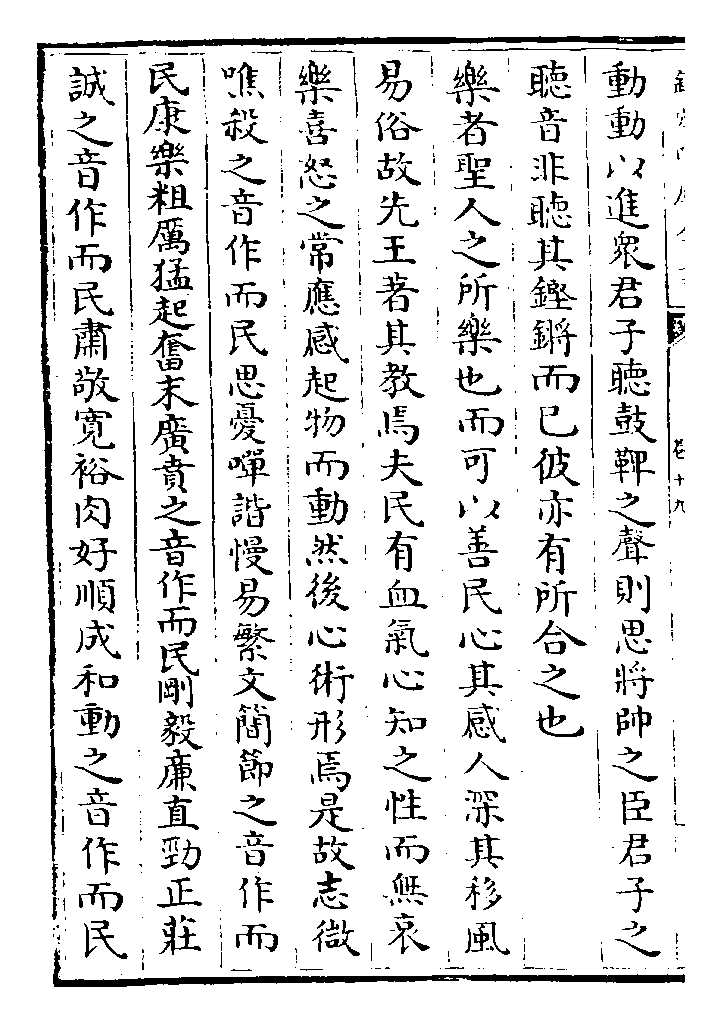 動動以進衆君子聽鼓鞞之聲則思將帥之臣君子之
聽音非聽其鏗鏘而已彼亦有所合之也
樂者聖人之所樂也而可以善民心其感人深其移風
易俗故先王著其教焉夫民有血氣心知之性而無哀
樂喜怒之常應感起物而動然後心術形焉是故志微
噍殺之音作而民思憂嘽諧慢易繁文簡節之音作而
民康樂粗厲猛起奮末廣賁之音作而民剛毅廉直勁正莊
誠之音作而民肅敬寛裕肉好順成和動之音作而民
卷十九